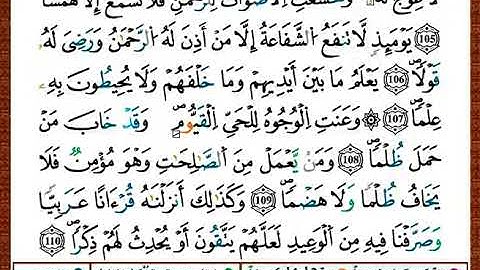 لَا عِوَجَ لَهُۥ ۖ وَخَشَعَتِ ٱلْأَصْوَاتُ لِلرَّحْمَٰنِ فَلَا تَسْمَعُ إِلَّا هَمْسًا
﴿105﴾ يَوْمَئِذٍ لَّا تَنفَعُ ٱلشَّفَاعَةُ إِلَّا مَنْ أَذِنَ لَهُ ٱلرَّحْمَٰنُ وَرَضِىَ لَهُۥ
قَوْلًا ﴿106﴾ يَعْلَمُ مَا بَيْنَ أَيْدِيهِمْ وَمَا خَلْفَهُمْ وَلَا يُحِيطُونَ بِهِۦ
عِلْمًا ﴿107﴾ ۞ وَعَنَتِ ٱلْوُجُوهُ لِلْحَىِّ ٱلْقَيُّومِ ۖ وَقَدْ خَابَ مَنْ
حَمَلَ ظُلْمًا ﴿108﴾ وَمَن يَعْمَلْ مِنَ ٱلصَّٰلِحَٰتِ وَهُوَ مُؤْمِنٌ فَلَا
يَخَافُ ظُلْمًا وَلَا هَضْمًا ﴿109﴾ وَكَذَٰلِكَ أَنزَلْنَٰهُ قُرْءَانًا عَرَبِيًّا
وَصَرَّفْنَا فِيهِ مِنَ ٱلْوَعِيدِ لَعَلَّهُمْ يَتَّقُونَ أَوْ يُحْدِثُ لَهُمْ ذِكْرًا ﴿110﴾